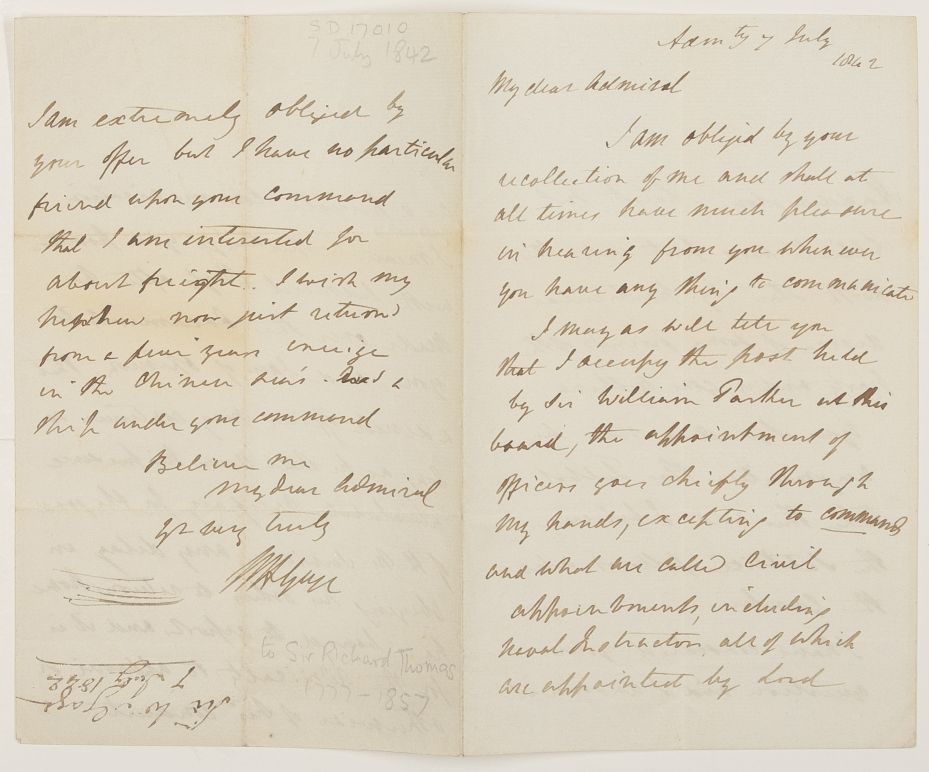 Admty 7 July
1842
My dear Admiral
I am obliged by your
recollection of me and shall at
all times have much pleasure
in hearing from you whenever
you have any thing to communicate
I may as well tell you
that I occupy the post held
by Sir William Parker at this
board, the appointment of
officers goes chiefly through
my hands, excepting to command
and what are called civil
appointments, including
Naval Instructors, all of which
are appointed by Lord
SD 17010
7 July 1842
I am extremely obliged by
your offer but I have no particular
friend upon your command
that I am interested for
about freight. I wish my
nephew now just returned
from a four years cruize
in the Chinese seas. had a
ship under your command
Believe me
My dear Admiral
yr very truly
WHGage
to Sir Richard Thomas
1777-1857
Sir W. Gage
7 July 1842